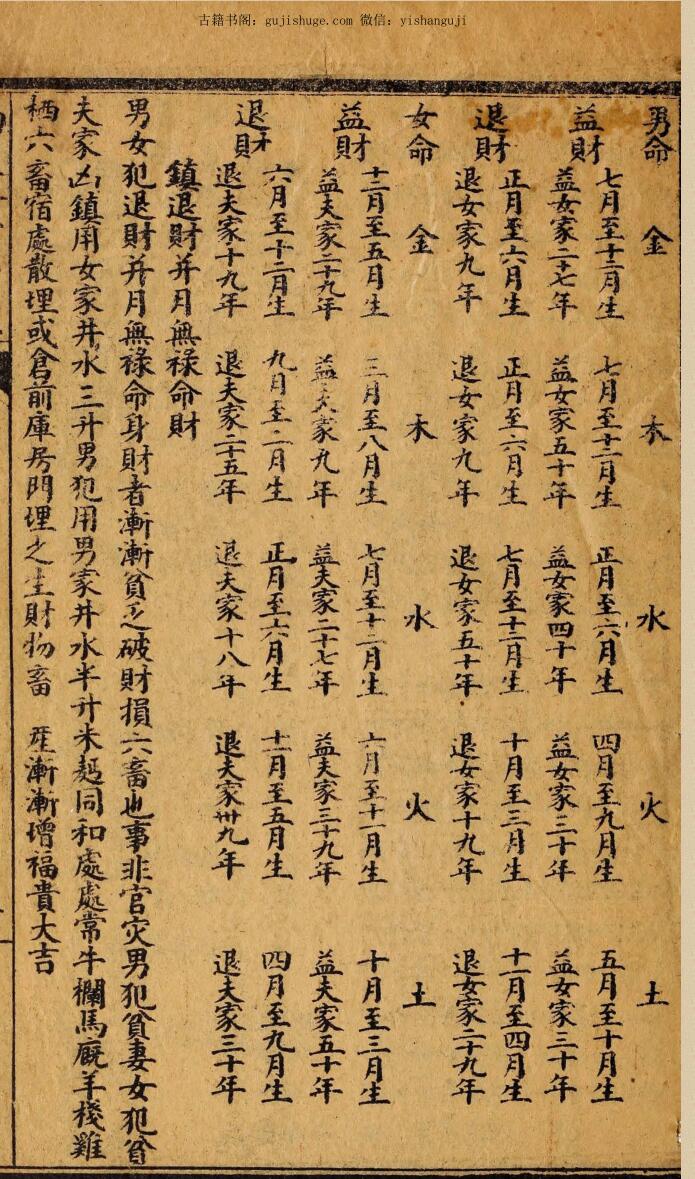 古籍书阁：gujishuge.com 微信：yishanguji
男命 金 木 水 火 土
益財 七月至十二月生 七月至十二月生 正月至六月生 四月至九月生 五月至十月生
益女家二十七年 益女家五十年 益女家四十年 益女家三十年 益女家三十年
退財 正月至六月生 正月至六月生 七月至十二月生 十月至三月生 十一月至四月生
退女家九年 退女家九年 退女家五十年 退女家十九年 退女家二十九年
女命 金 木 水 火 土
益財 十二月至五月生 三月至八月生 七月至十二月生 六月至十一月生 十月至三月生
益夫家二十九年 益夫家九年 益夫家二十七年 益夫家三十九年 益夫家五十年
退財 六月至十二月生 九月至二月生 正月至六月生 十二月至五月生 四月至九月生
退夫家十九年 退夫家二十五年 退夫家十八年 退夫家卅九年 退夫家三十年
鎮退財并月無祿命財
男女犯退財并月無祿命身財者漸漸貧乏破財損六畜也事非官灾男犯貧妻女犯貧
夫家凶鎮用女家井水三升男犯用男家井水半升米麪同和處處常牛欄馬廐羊棧雞
栖六畜宿處散埋或倉前庫房門埋之生財物畜 産漸漸增福貴大吉